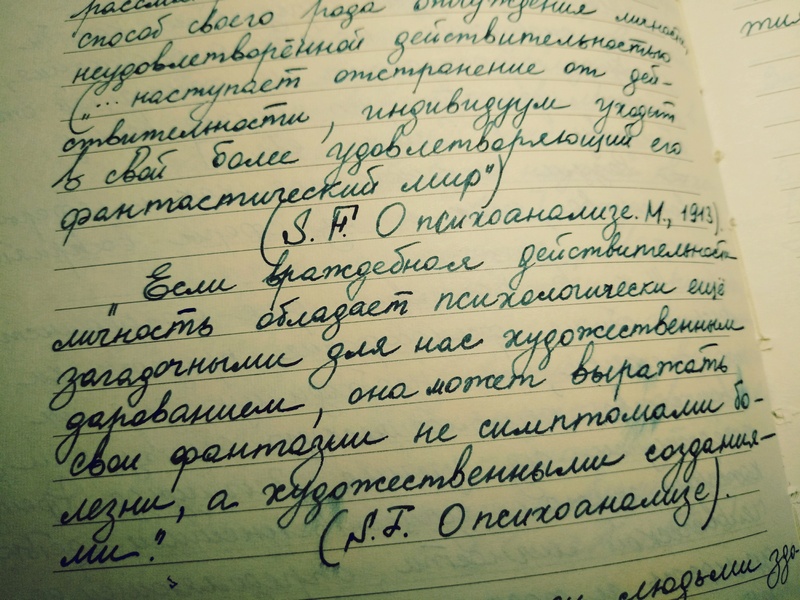 способ своего рода отчуждения личности,
неудовлетворённой действительностью
("... наступает отстранение от дей-
ствительности, индивидуум уходит
в свой более удовлетворяющий его
фантастический мир")
(S. F. О психоанализе. М., 1913).
"Если враждебная действительности
личность обладает психологически ещё
загадочными для нас художественным
дарованием, она может выражать
свои фантазии не симптомами бо-
лезни, а художественными создания-
ми." (S. F. О психоанализе).
людьми